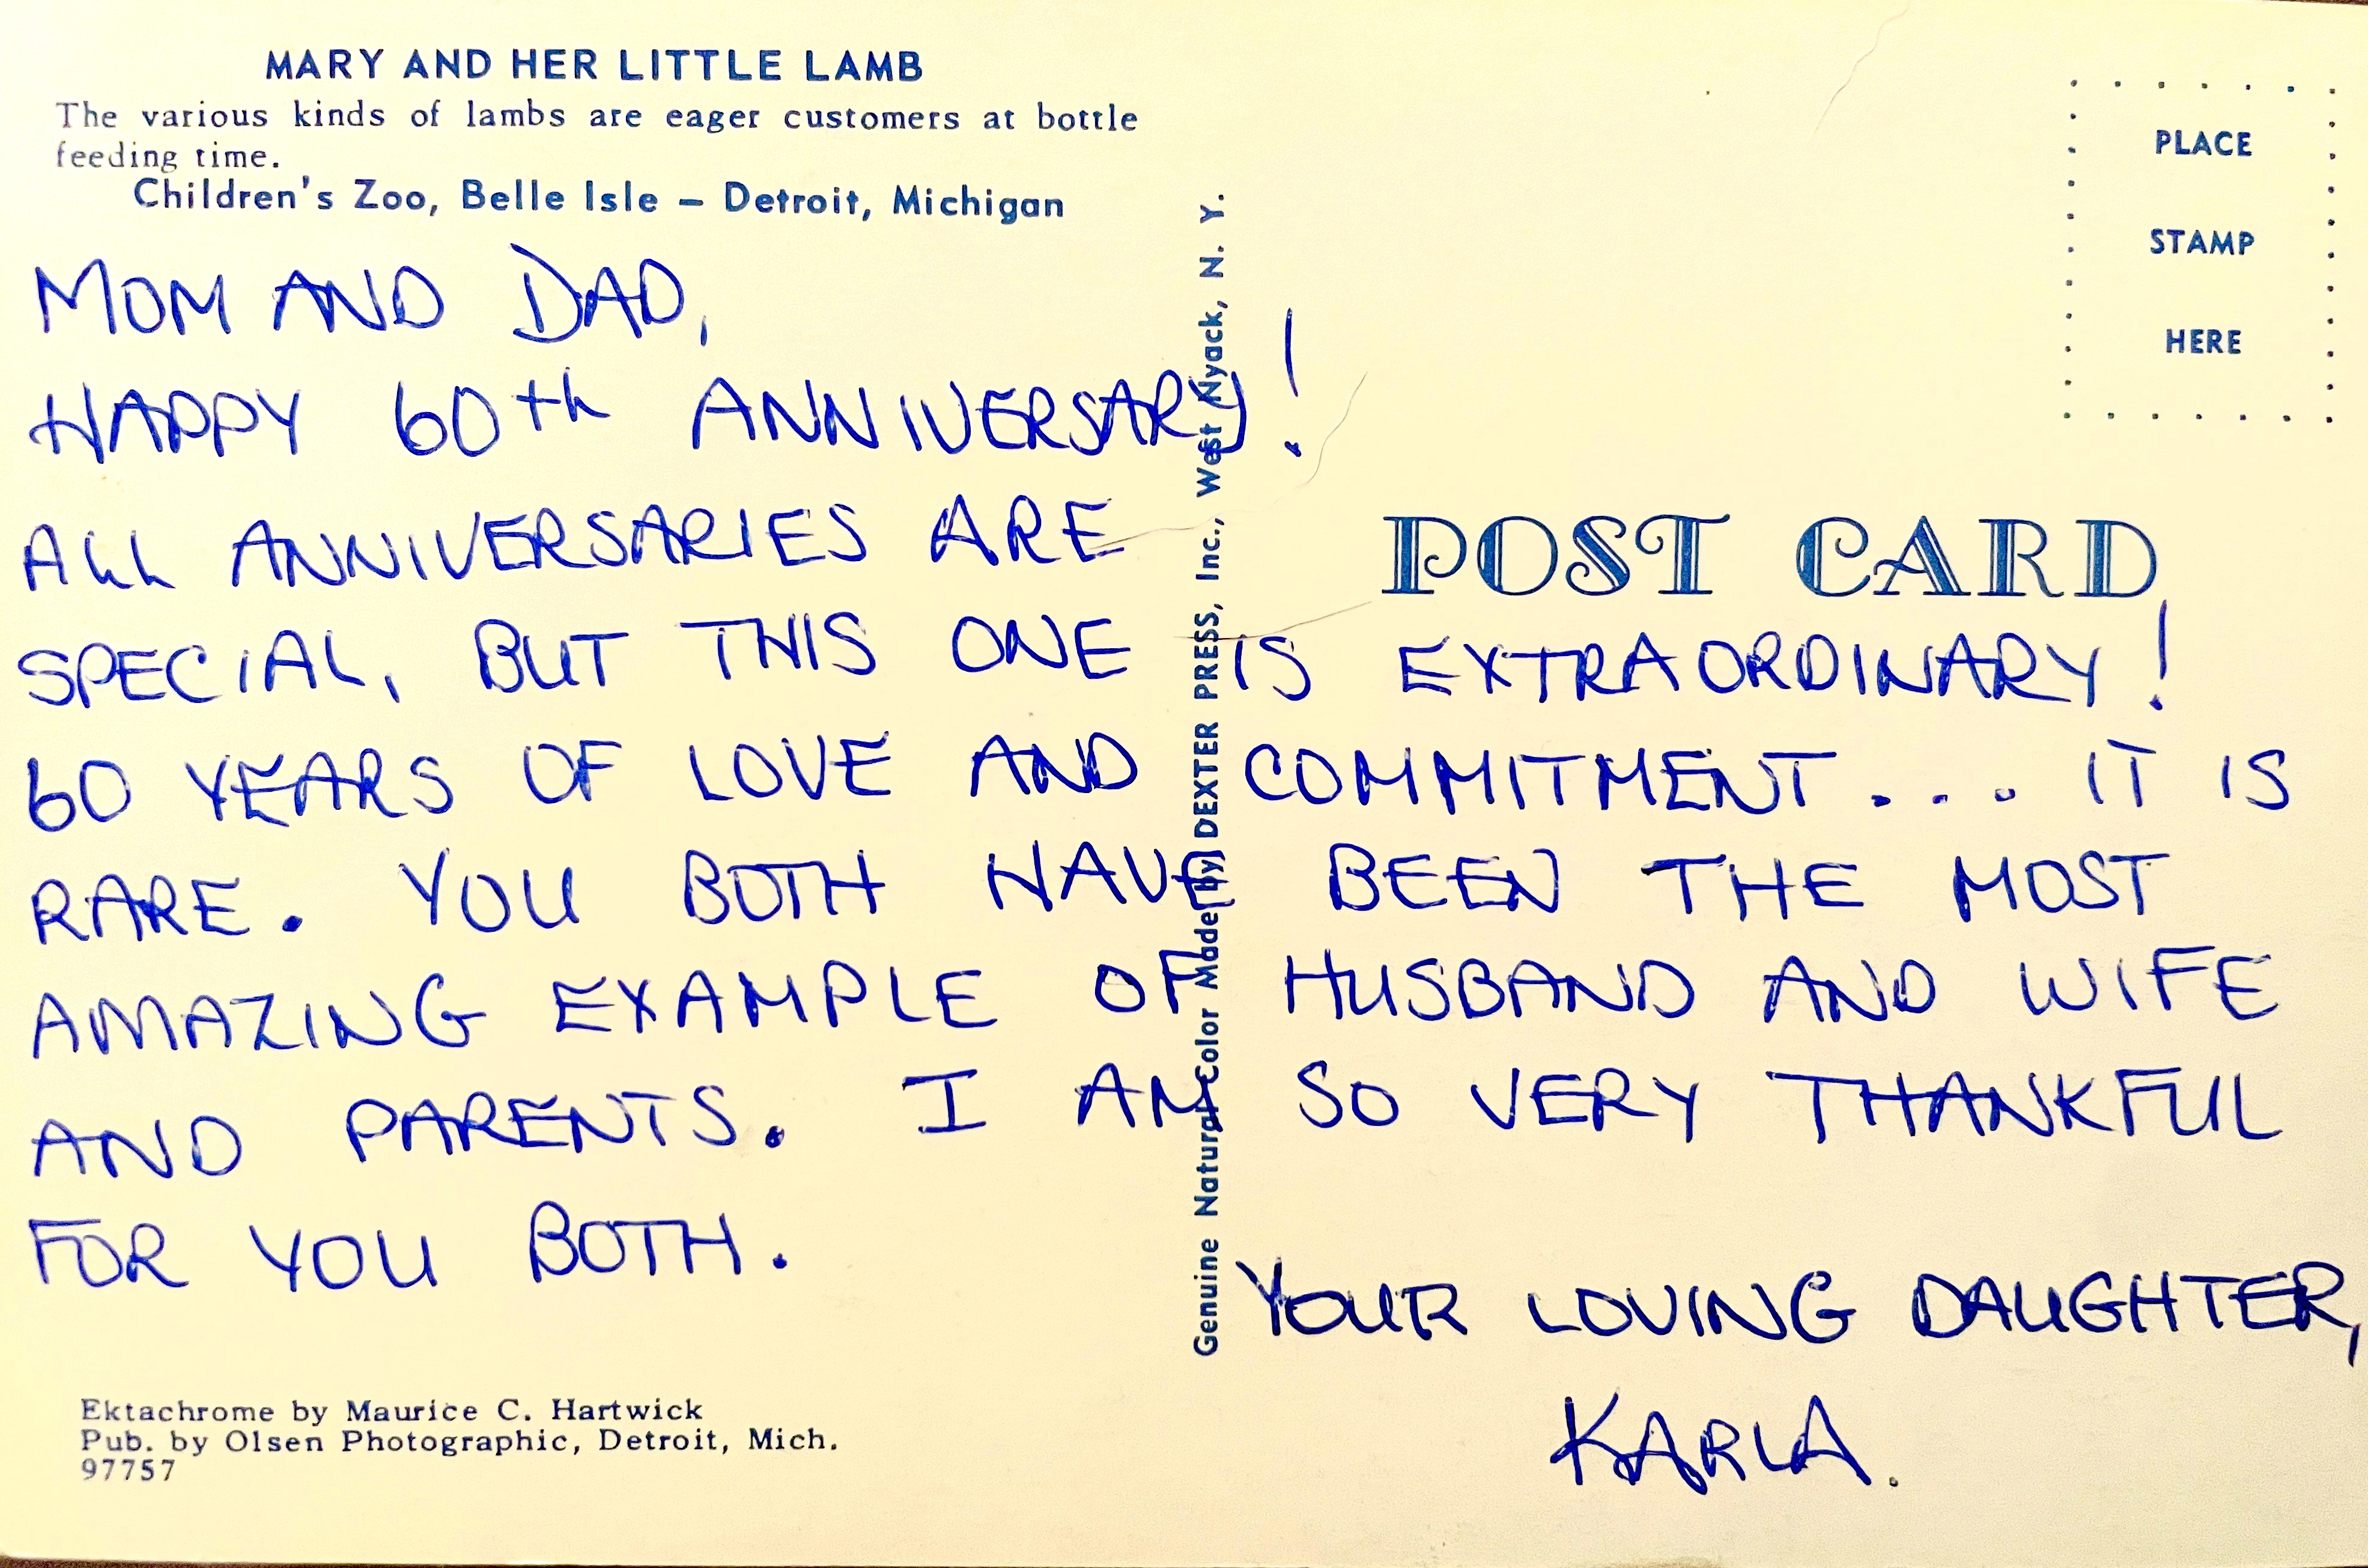 MARY AND HER LITTLE LAMB
The various kinds of lambs are eager customers at bottle
feeding time.
Children's Zoo, Belle Isle – Detroit, Michigan
MOM AND DAD,
HAPPY 60th ANNIVERSARY!
ALL ANNIVERSARIES ARE
SPECIAL, BUT THIS ONE IS EXTRAORDINARY!
60 YEARS OF LOVE AND COMMITMENT... IT IS
RARE. YOU BOTH HAVE BEEN THE MOST
AMAZING EXAMPLE OF HUSBAND AND WIFE
AND PARENTS. I AM SO VERY THANKFUL
FOR YOU BOTH.
YOUR LOVING DAUGHTER,
KARLA.
Ektachrome by Maurice C. Hartwick
Pub. by Olsen Photographic, Detroit, Mich.
97757
Genuine Natural Color Made by DEXTER PRESS, Inc., West Nyack, N. Y.
PLACE
STAMP
HERE
POST CARD